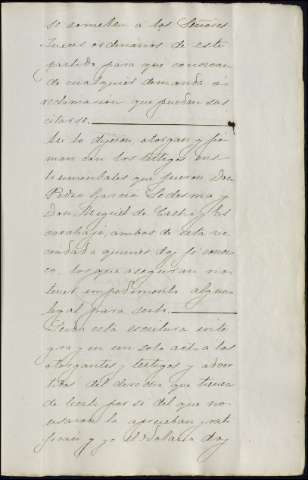 se someten a los Señores
Jueces ordinarios de este
partido para que conozcan
de cualquier demanda o
reclamacion que puedan sus
citarse.
Asi lo dijeron, otorgan y fir
man con los testigos ins
trumentales que fueron Don
Pedro Garcia Ledesma y
Don Miguel de
ambos de esta ve
cindad a quienes doy fé conoz
co, los que aseguran no
tener impedimento alguno
legal para serlo.
Leida esta escritura inte
gra y en un solo acto a los
otorgantes y testigos y adver
tidos del derecho que tienen
de leerla por sí del que no
usaron la aprueban y rati
fican y yo el Notario doy